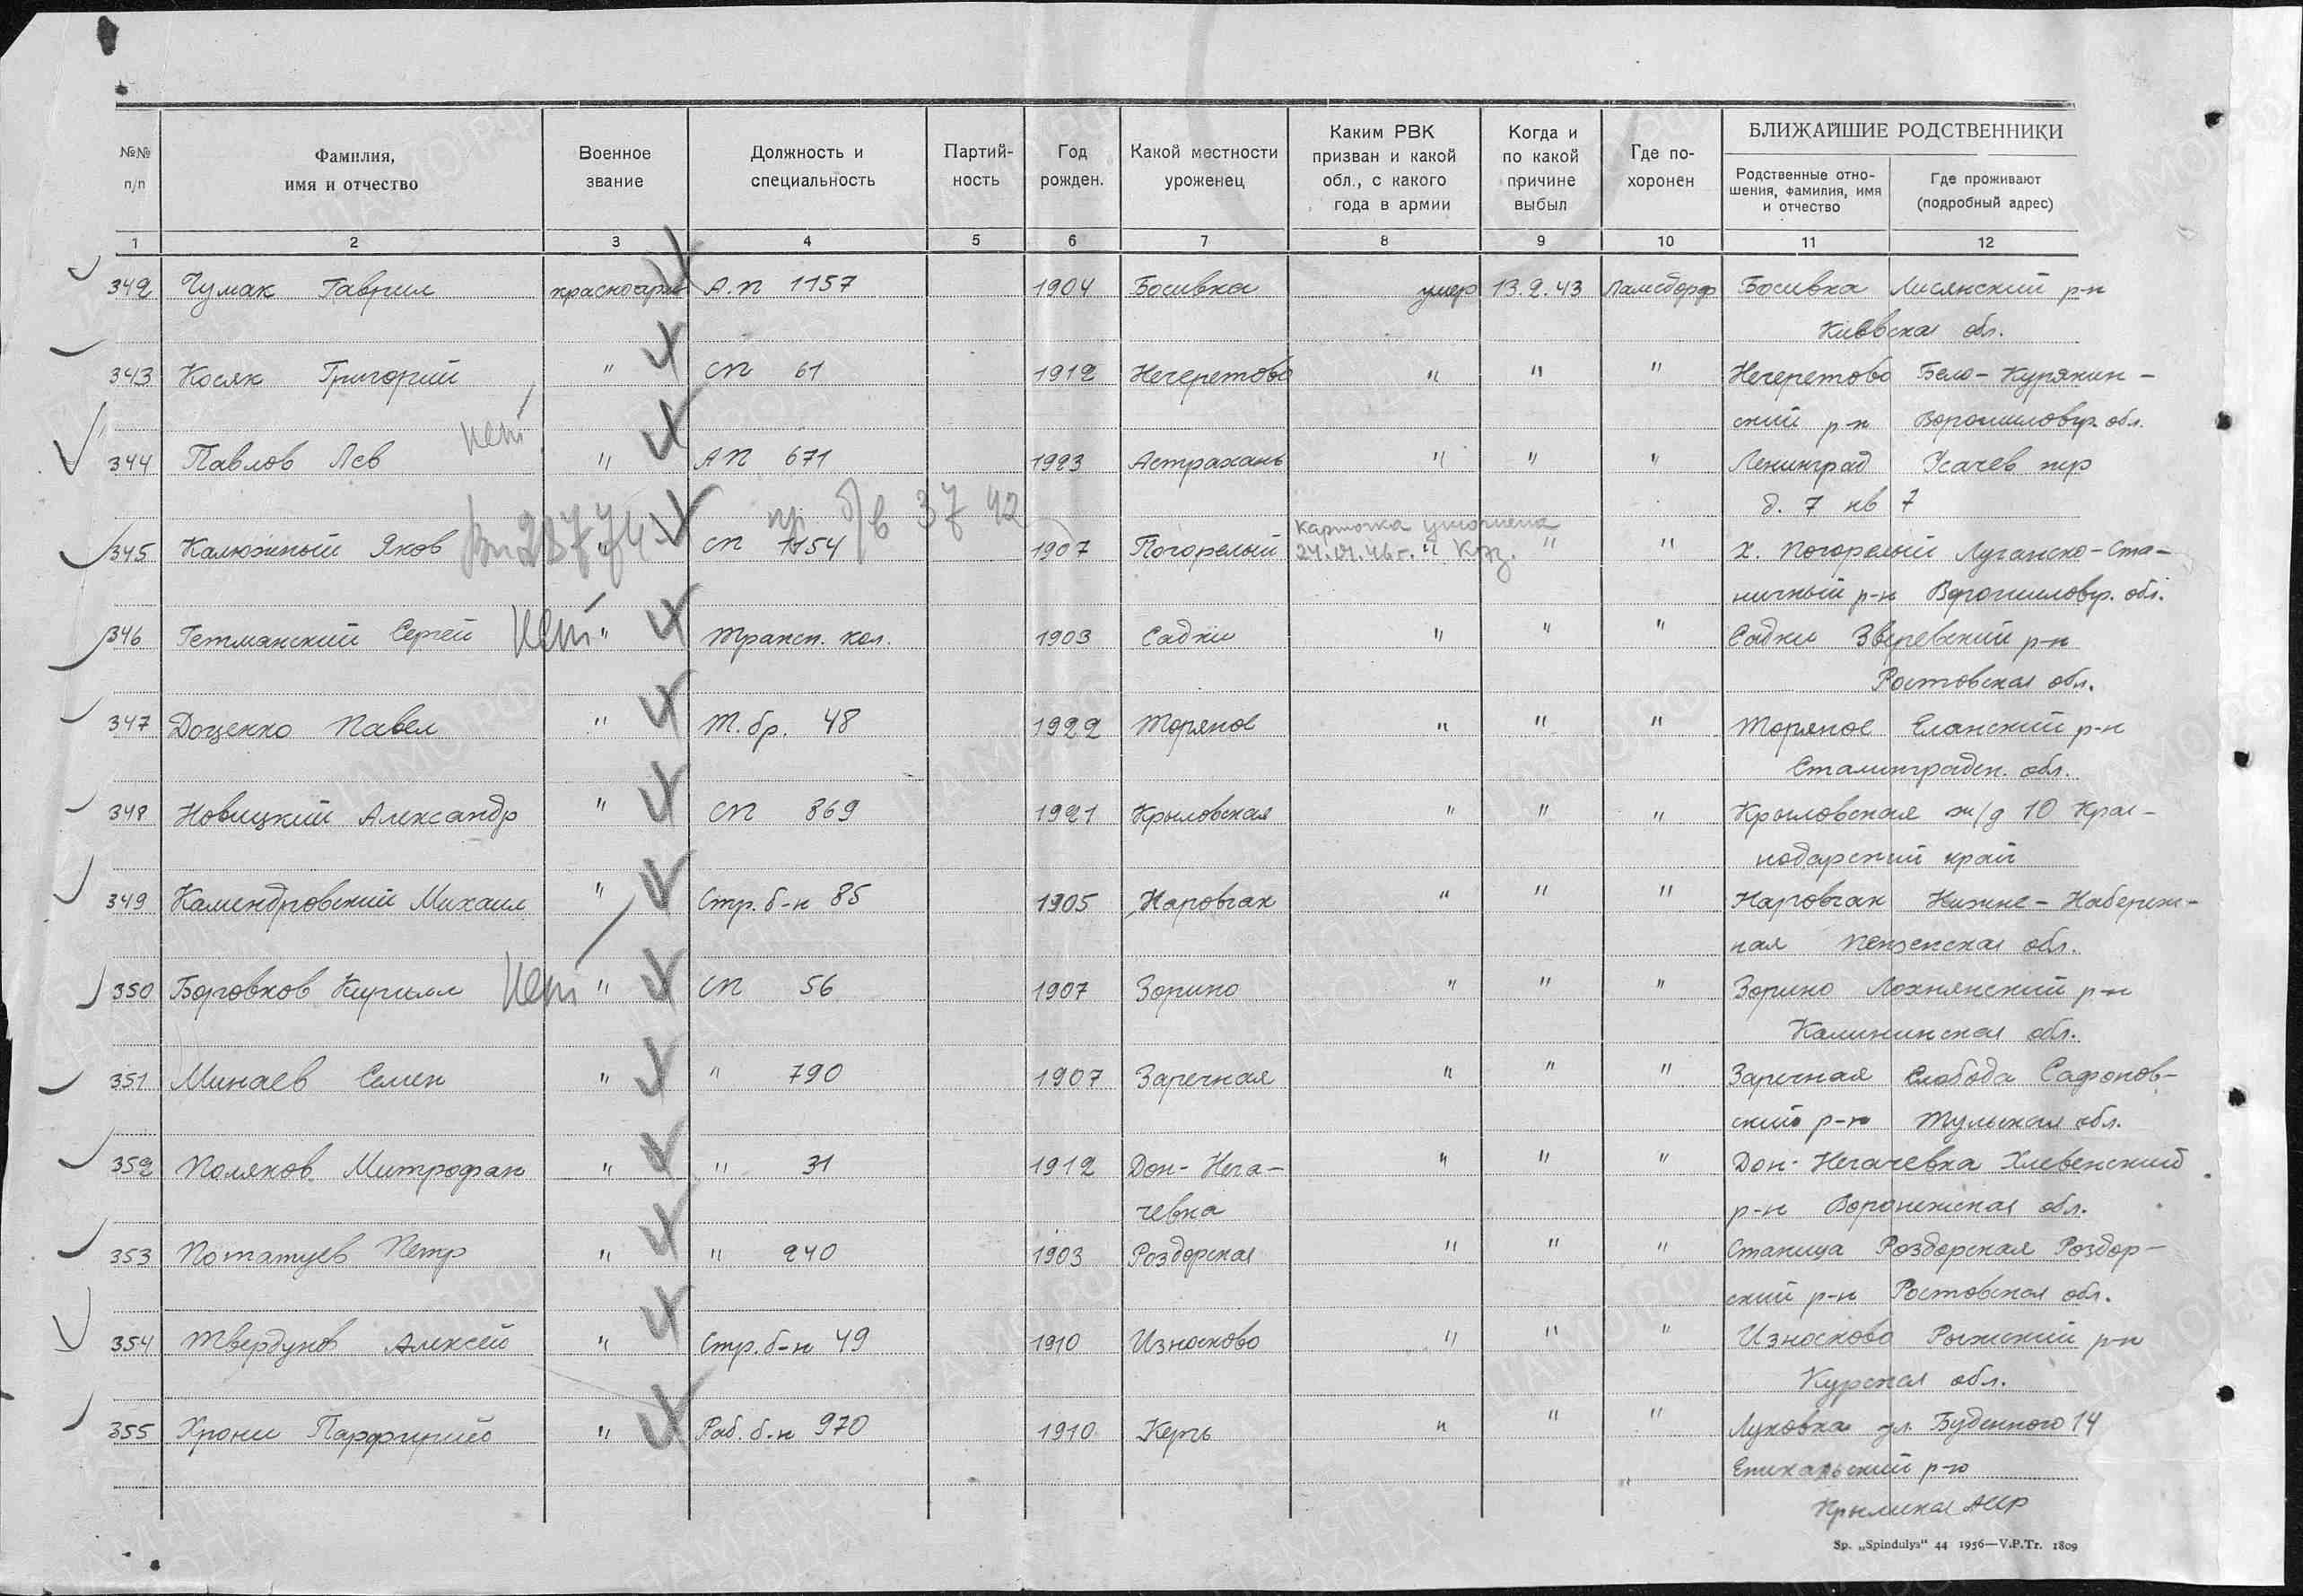 №№ п/п
Фамилия, имя и отчество
Военное звание
Должность и специальность
Партийность
Год рожден.
Какой местности уроженец
Каким РВК призван и какой обл., с какого года в армии
Когда и по какой причине выбыл
Где похоронен
БЛИЖАЙШИЕ РОДСТВЕННИКИ
Родственные отношения, фамилия, имя и отчество
Где проживают (подробный адрес)
1 2 3 4 5 6 7 8 9 10 11 12
342 Чумак Гаврил красноарм А.П 1157 1904 Босивка умер 13.2.43 Ламсдорф Босивка Лисянский р-н
Киевская обл.
343 Косяк Григорий " СП 61 1912 Нечеретово " " " Нечеретово Бело-Курякин-
ский р-н Ворошиловгр. обл.
нет
344 Павлов Лев " АП 671 1923 Астрахань " " " Ленинград Усачев пер
д. 7 кв 7
пр б/в 37 42
Карточка уточнена
345 Калюжный Яков " СП 1154 1907 Погорелый " " " х. Погорелый Луганско-Ста-
ничный р-н Ворошиловгр. обл.
346 Гетманский Сергей нет " Трансп. кол. 1903 Садки " " " Садки Зверевский р-н
Ростовская обл.
347 Доценко Павел " Т. бр. 48 1922 Торяное " " " Торяное Еланский р-н
Сталинградск. обл.
348 Новицкий Александр " СП 869 1921 Крыловская " " " Крыловская ж/д 10 Крас-
нодарский край
349 Калиндровский Михаил " Стр. б-н 85 1905 Наровчак " " " Наровчак Нижне-Набереж-
ная Пензенская обл.
350 Боровков Кирилл нет " СП 56 1907 Зорино " " " Зорино Лохнянский р-н
Калининская обл.
351 Минаев Семен " " 790 1907 Заречная " " " Заречная Слобода Сафонов-
ский р-н Тульская обл.
352 Поляков Митрофан " " 31 1912 Дон-Нега- " " " Дон-Негачевка Хлевенский
чевка р-н Воронежская обл.
353 Потатуев Петр " " 240 1903 Роздорская " " " Станица Роздорская Роздор-
ский р-н Ростовская обл.
354 Твердунов Алексей " Стр. б-н 49 1910 Износково " " " Износково Рыжский р-н
Курская обл.
355 Хрони Парфирий " Раб. б-н 970 1910 Керчь " " " Луковка ул. Буденного 14
Еникальский р-н
Крымская АССР
Sp. „Spindulys“ 44 1956—V.P.Tr. 1809